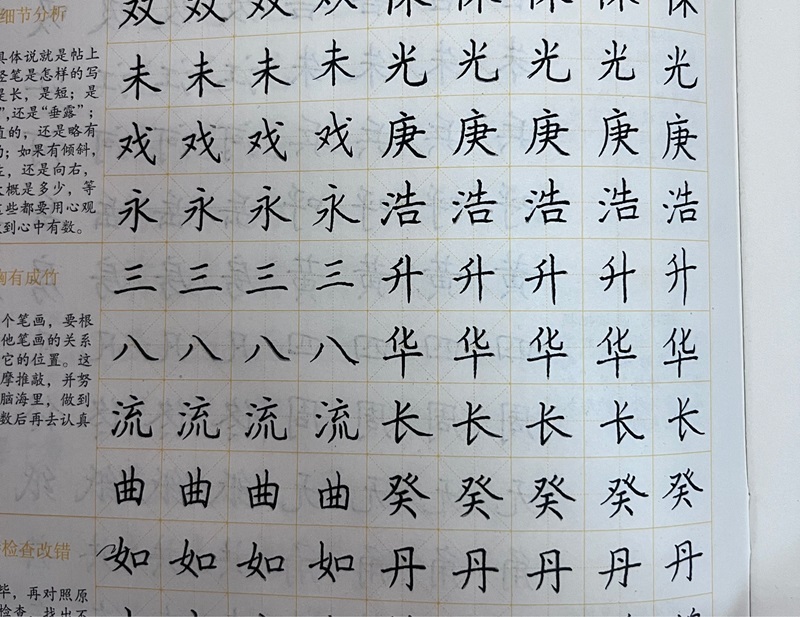 细节分析
具体说就是帖上
笔是怎样的写
是长，是短；是
”,还是“垂露”；
直的，还是略有
；如果有倾斜，
，还是向右，
概是多少，等
些都要用心观
到心中有数。
胸有成竹
个笔画，要根
他笔画的关系
它的位置。这
摩推敲，并努
脑海里，做到
数后再去认真
检查改错
毕，再对照原
检查，找出不
双双双双休休休休休
未未未未光光光光光
戏戏戏戏庚庚庚庚庚
永永永永浩浩浩浩浩
三三三三升升升升升
八八八八华华华华华
流流流流长长长长长
曲曲曲曲癸癸癸癸癸
如如如如丹丹丹丹丹